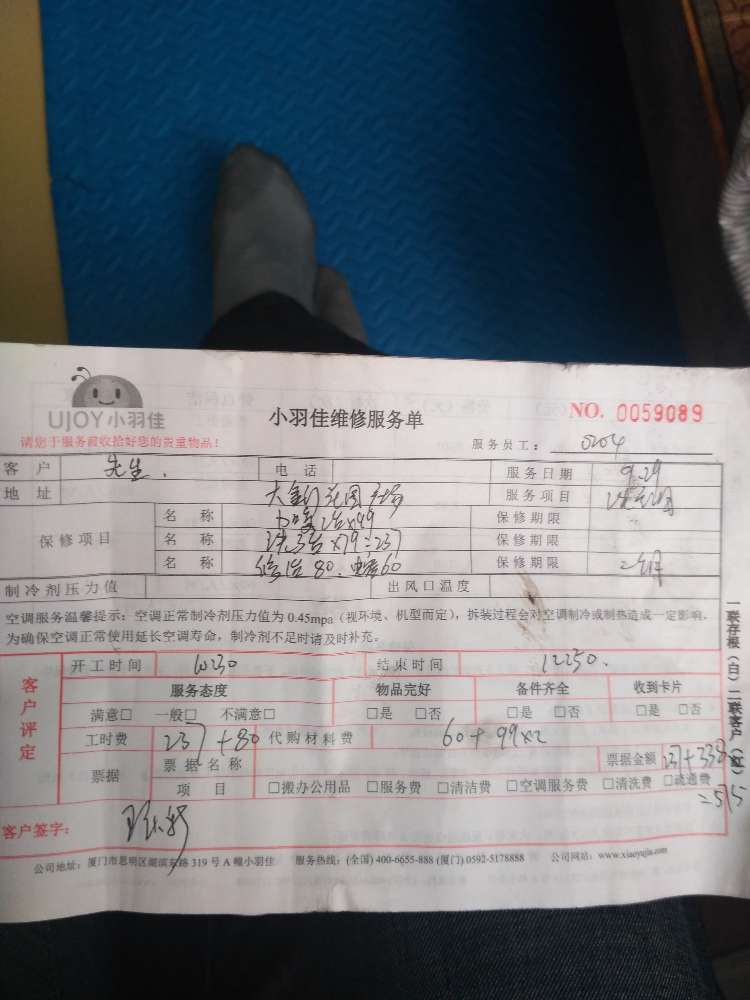 UJOY小羽佳
小羽佳维修服务单
NO. 0059089
请您于服务前收拾好您的贵重物品!
服务员工: 0204
客户 先生. 电话 服务日期 9.29
地址 服务项目
保修项目 名称 保修期限
名称 洗3台×79=237 保修期限
名称 80. 60 保修期限
制冷剂压力值 出风口温度
空调服务温馨提示:空调正常制冷剂压力值为 0.45mpa(视环境、机型而定),拆装过程会对空调制冷或制热造成一定影响,
为确保空调正常使用延长空调寿命,制冷剂不足时请及时补充。
客户评定
开工时间 10:30 结束时间 12:50.
服务态度 物品完好 备件齐全 收到卡片
满意□ 一般□ 不满意□ □是 □否 □是 □否 □是 □否
工时费 237+80 代购材料费 60+99×2
票据 票据名称 票据金额 237+338
项目 □搬办公用品 □服务费 □清洁费 □空调服务费 □清洗费 □疏通费
=575
客户签字:
公司地址:厦门市思明区湖滨东路 319 号 A 幢小羽佳 服务热线:(全国) 400-6655-888 (厦门) 0592-5178888 公司网站:www.xiaoyujia.com
一联存根(白)二联客户(红)